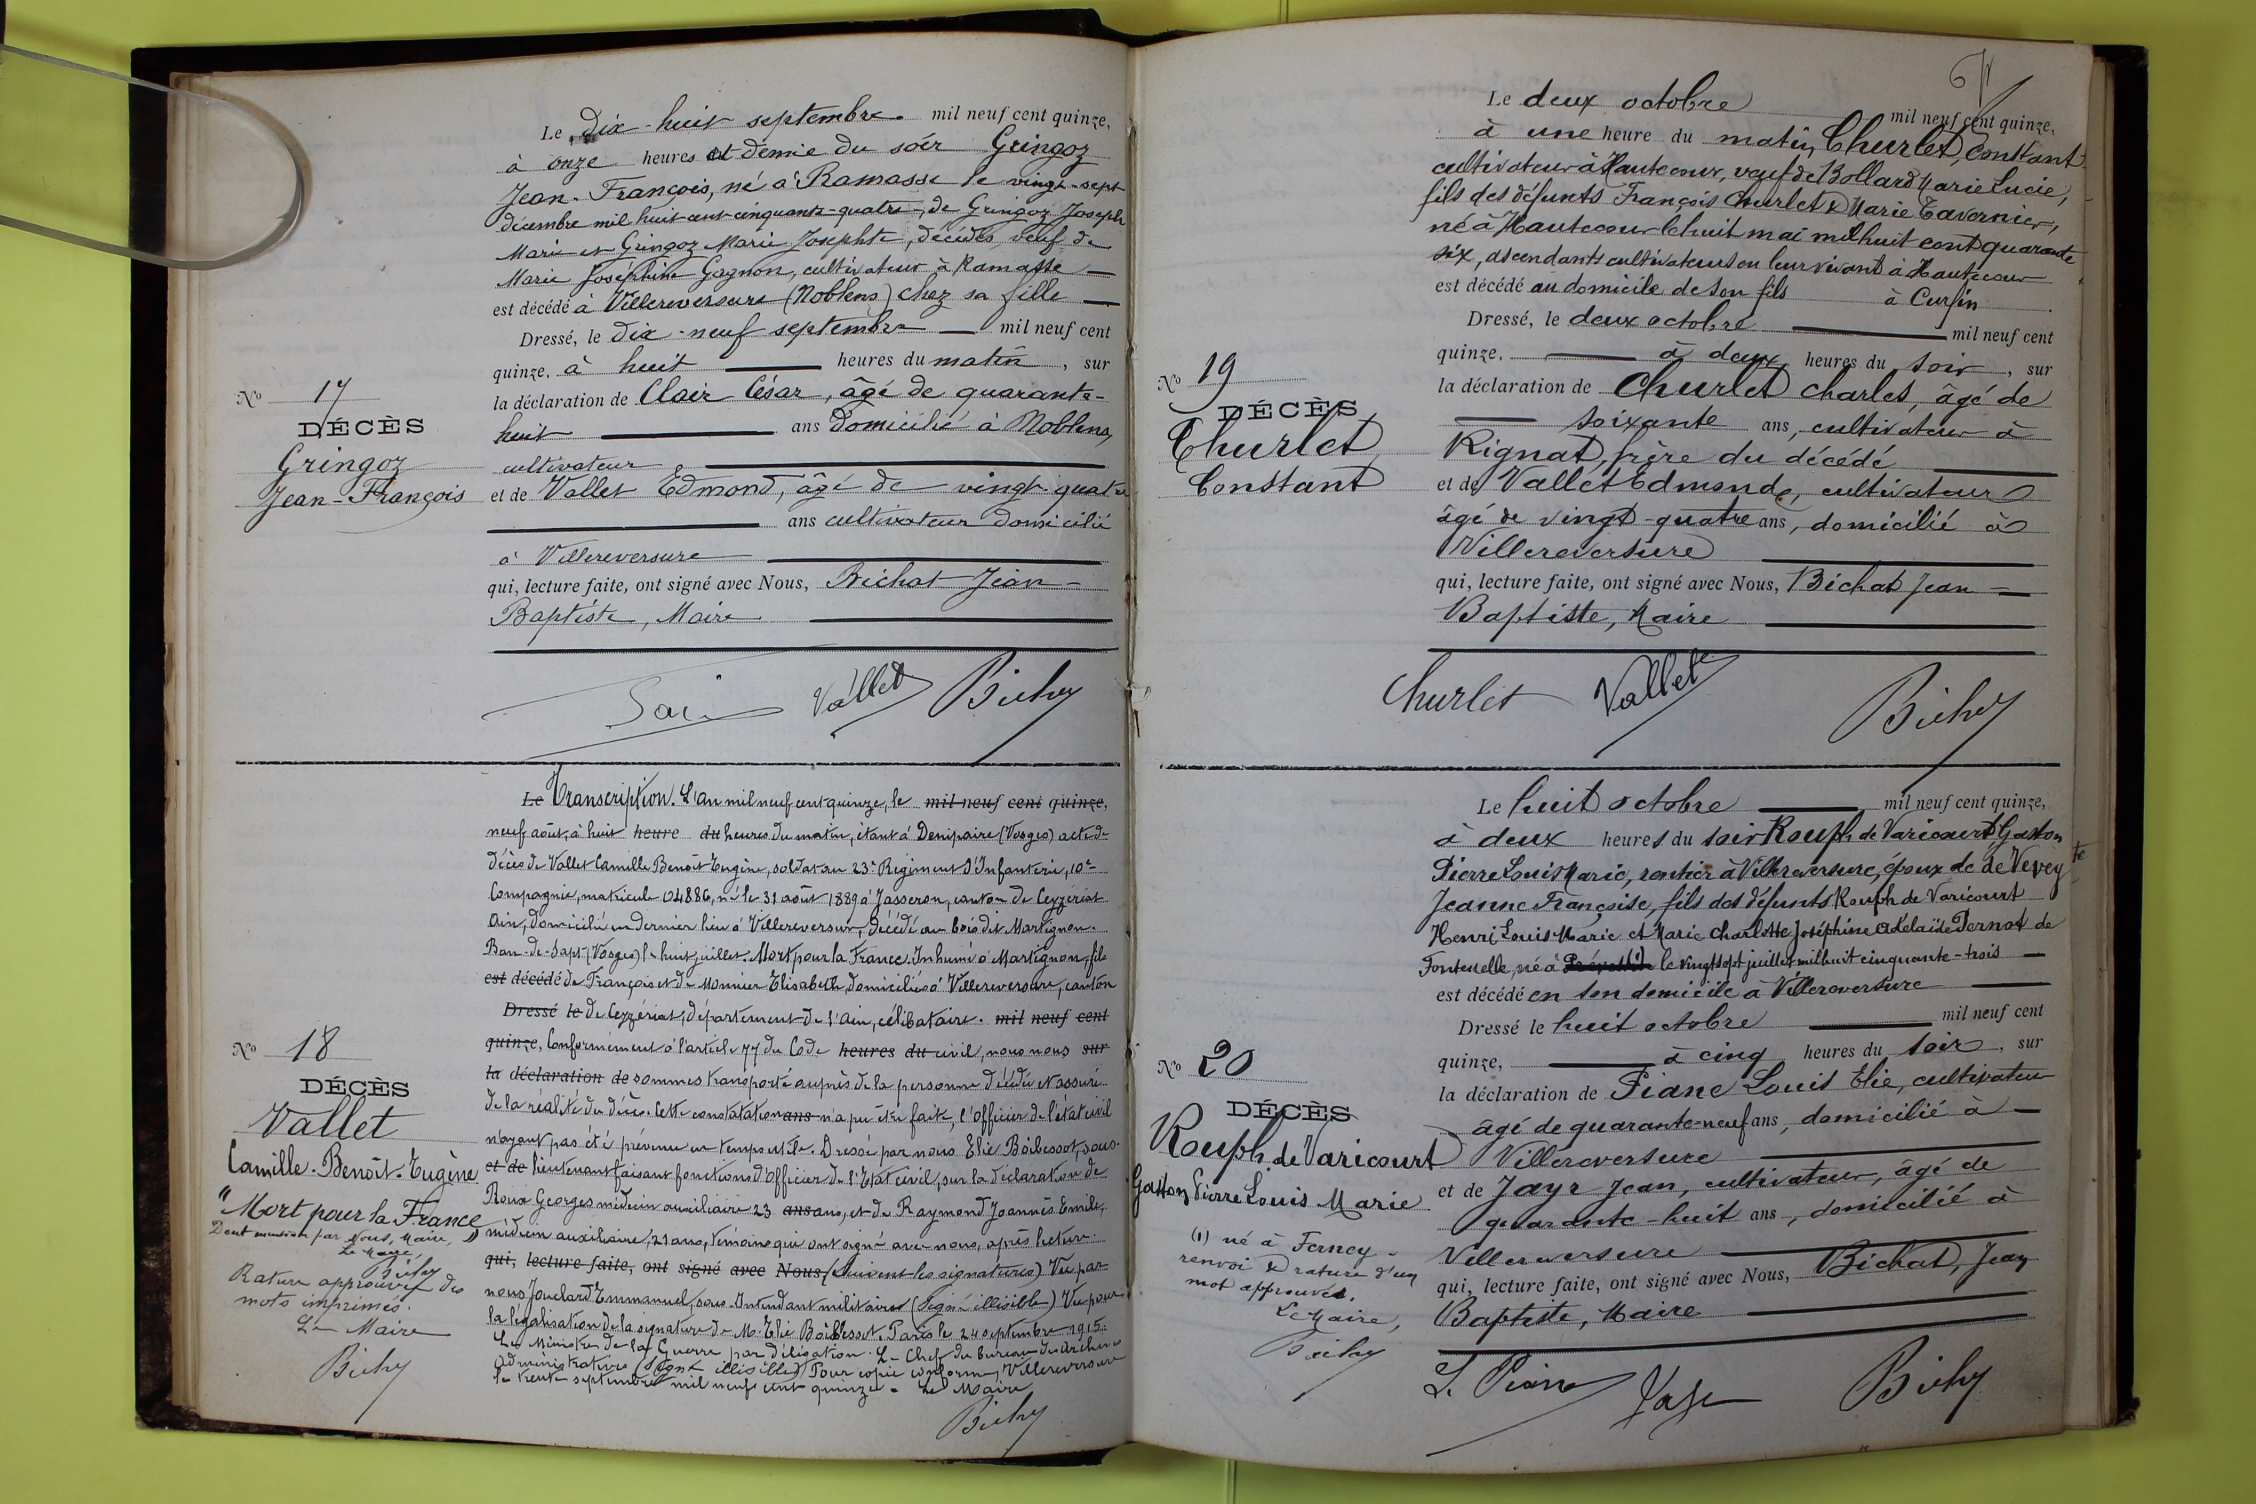 Le dix-huit septembre. mil neuf cent quinze,
à onze heures et demie du soir Gringoz
Jean-François, né à Ramasse le vingt-sept
décembre mil huit cent cinquante-quatre, de Gringoz Joseph
Marie et Gringoz Marie Josephte, décédés, veuf de
Marie Joséphine Gagnon, cultivateur à Ramasse
est décédé à Villereversure (Noblens) chez sa fille
Dressé, le dix-neuf septembre mil neuf cent
quinze, à huit heures du matin, sur
la déclaration de Clair César, âgé de quarante-
huit ans domicilié à Noblens,
cultivateur
et de Vallet Edmond, âgé de vingt-quatre
ans cultivateur domicilié
à Villereversure
qui, lecture faite, ont signé avec Nous, Bichat Jean-
Baptiste, Maire
No 17
DÉCÈS
Gringoz
Jean-François
Vallet Bichat
Le Transcription. L'an mil neuf cent quinze, le mil neuf cent quinze,
neuf août, à huit heure du heures du matin, étant à Denipaire (Vosges) acte de
décès de Vallet Camille Benoît Eugène, soldat au 23e Régiment d'Infanterie, 10e
Compagnie, matricule 04886, né le 31 août 1889 à Jasseron, canton de Ceyzériat
Ain, domicilié en dernier lieu à Villereversure, décédé au bois dit Martignon.
Ban-de-Sapt (Vosges) le huit juillet. Mort pour la France. Inhumé à Martignon, fils
est décédé de François et de Monnier Elisabeth, domiciliés à Villereversure, canton
Dressé le de Ceyzériat, département de l'Ain, célibataire. mil neuf cent
quinze, Conformément à l'article 77 du Code heures du civil, nous nous sur
la déclaration de sommes transporté auprès de la personne décédée et assuré
de la réalité du décès. Cette constatation ans n'a pu être faite, l'officier de l'état civil
n'ayant pas été prévenu en temps utile. Dressé par nous Elie Boibessot, sous-
et de lieutenant faisant fonctions d'Officier de l'Etat civil, sur la déclaration de
Roux Georges médecin auxiliaire 23 ans ans, et de Raymond Joannès Emile,
médecin auxiliaire, 21 ans, témoins qui ont signé avec nous, après lecture.
qui, lecture faite, ont signé avec Nous, (Suivent les signatures) Vu par
nous Jouclard Emmanuel, sous-Intendant militaire (Signé illisible) Vu pour
la légalisation de la signature de M. Elie Boibessot. Paris le 24 septembre 1915.
Le Ministre de la Guerre par délégation. Le Chef du bureau des Archives
administratives (Signé illisible) Pour copie conforme, Villereversure
le trente septembre mil neuf cent quinze. Le Maire
Bichat
No 18
DÉCÈS
Vallet
Camille-Benoît-Eugène
"Mort pour la France"
Dont mention par Nous, Maire,
Le Maire,
Bichat
Rature approuvée des
mots imprimés.
Le Maire
Bichat
Le deux octobre mil neuf cent quinze,
à une heure du matin, Churlet, Constant
cultivateur à Hautecour, veuf de Bollard Marie Lucie,
fils des défunts François Churlet & Marie Tavernier,
né à Hautecour le huit mai mil huit cent quarante
six, ascendants cultivateurs en leur vivant à Hautecour
est décédé au domicile de son fils à Cursin
Dressé, le deux octobre mil neuf cent
quinze, à deux heures du soir, sur
la déclaration de Churlet Charles, âgé de
soixante ans, cultivateur à
Rignat, frère du décédé
et de Vallet Edmond, cultivateur
âgé de vingt-quatre ans, domicilié à
Villereversure
qui, lecture faite, ont signé avec Nous, Bichat Jean
Baptiste, Maire
No 19
DÉCÈS
Churlet
Constant
Churlet Vallet Bichat
Le huit octobre mil neuf cent quinze,
à deux heures du soir Rouph de Varicourt Gaston
Pierre Louis Marie, rentier à Villereversure, époux de de Vevey
Jeanne Françoise, fils des défunts Rouph de Varicourt
Henri Louis Marie et Marie Charlotte Joséphine Adelaïde Pernot de
Fontenelle, né à le vingt sept juillet mil huit cinquante-trois
est décédé en son domicile à Villereversure
Dressé le huit octobre mil neuf cent
quinze, à cinq heures du soir, sur
la déclaration de Piane Louis Elie, cultivateur
âgé de quarante-neuf ans, domicilié à
Villereversure
et de Jayr Jean, cultivateur, âgé de
quarante-huit ans, domicilié à
Villereversure
qui, lecture faite, ont signé avec Nous, Bichat, Jean
Baptiste, Maire
No 20
DÉCÈS
Rouph de Varicourt
Gaston Pierre Louis Marie
(1) né à Ferney
renvoi & rature d'un
mot approuvés.
Le Maire,
Bichat
L. Piane Jayr Bichat